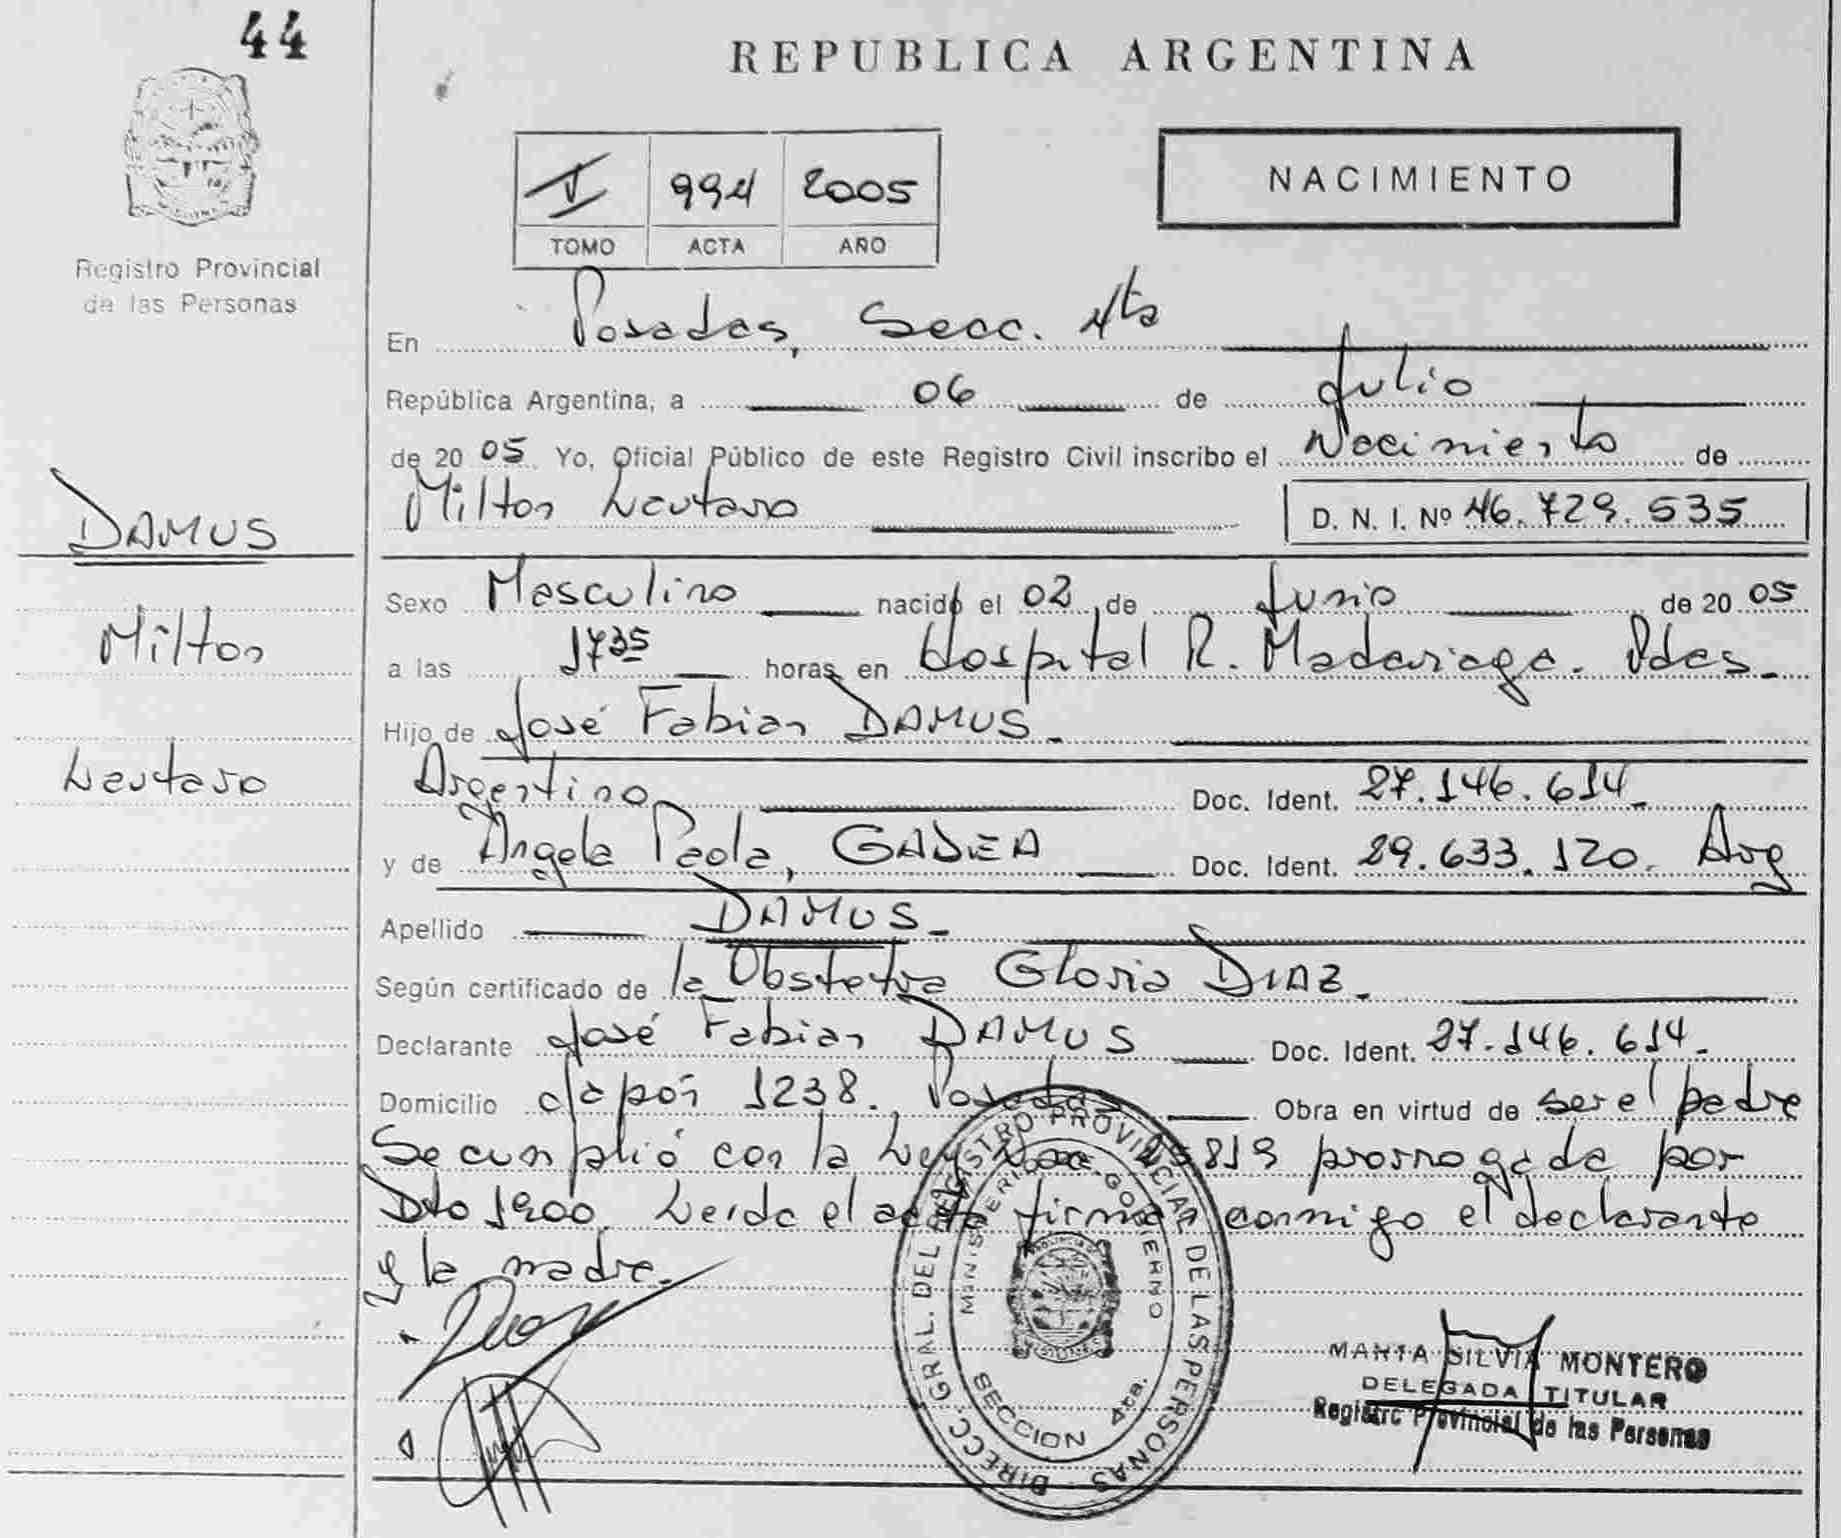 44
REPUBLICA ARGENTINA
I 994 2005
TOMO ACTA AÑO
NACIMIENTO
Registro Provincial
de las Personas
En Posadas, Secc. 4ta
República Argentina, a 06 de Julio
de 2005 Yo, Oficial Público de este Registro Civil inscribo el Nacimiento de
Milton Lautaro D. N. I. Nº 46.729.535
DAMUS
Milton
Lautaro
Sexo Masculino nacido el 02 de Junio de 2005
a las 1735 horas en Hospital R. Madariaga. Pdas.
Hijo de José Fabian DAMUS.
Argentino Doc. Ident. 27.146.614.
y de Angela Paola, GADEA Doc. Ident. 29.633.120. Arg
Apellido DAMUS.
Según certificado de la Obstetra Gloria DIAZ.
Declarante José Fabian DAMUS Doc. Ident. 27.146.614.
Domicilio Japón 1238. Posadas Obra en virtud de ser el padre
Se cumplió con la Ley Nac. 25819 prorrogada por
Dto 1900. Leida el acta firman conmigo el declarante
y la madre.
DIRECC. GRAL. DEL REGISTRO PROVINCIAL DE LAS PERSONAS
MINISTERIO DE GOBIERNO
SECCION 4ta.
MARTA SILVIA MONTERO
DELEGADA TITULAR
Registro Provincial de las Personas